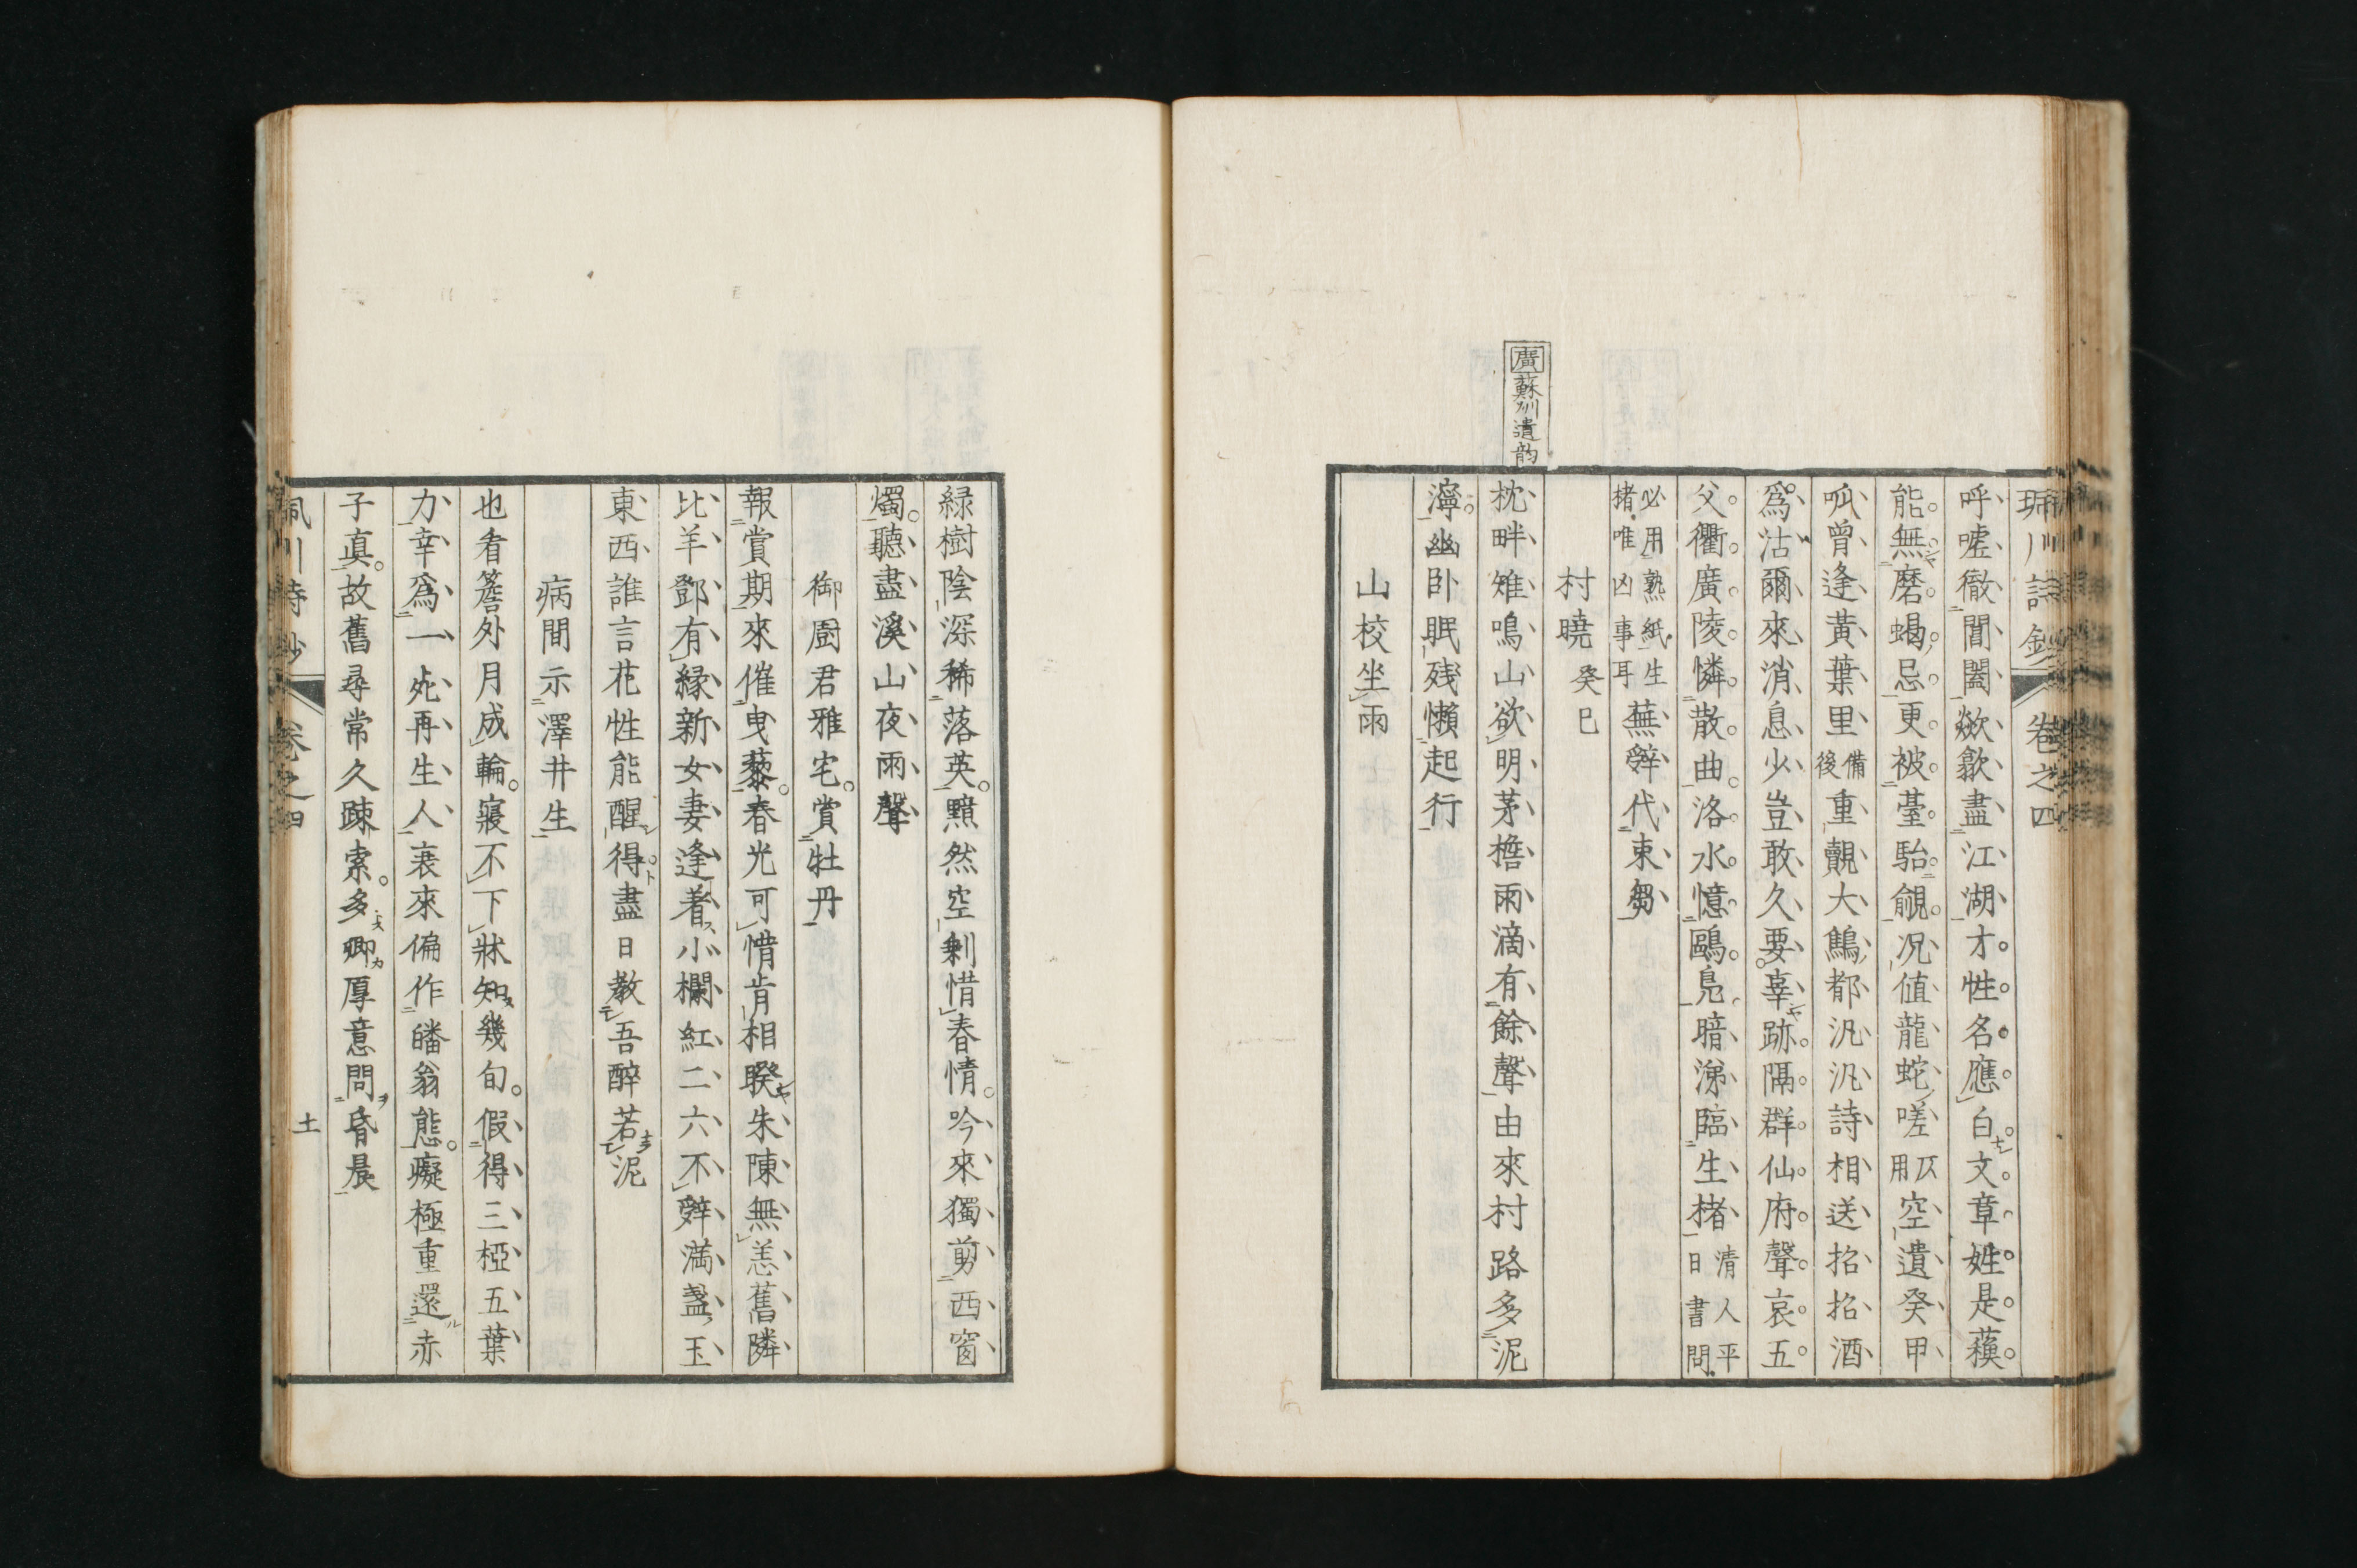 廣蘇州遺韵
珮川詩鈔 卷之四
呼嘘徹閶闔歘歙盡江湖才性名應白文章姓是蘓
能無磨蝎忌更被薹駘覦况值龍蛇嗟仄用空遺癸甲
呱曾逢黃葉里備後重覿大鷦都汎汎詩相送招招酒
爲沽爾來消息少豈敢久要辜跡隔群仙府聲哀五
父衢廣陵憐散曲洛水憶鷗鳧暗涕臨生楮清人平日書問
必用熟紙生楮唯凶事耳蕪辭代束芻
村曉 癸巳
枕畔雉鳴山欲明茅檐雨滴有餘聲由來村路多泥
濘幽卧眠殘懶起行
山校坐雨
緑樹陰深稀落英黯然空剰惜春情吟來獨剪西窗
燭聽盡溪山夜雨聲
御厨君雅宅賞牡丹
報賞期來催曳藜春光可惜肯相睽朱陳無恙舊隣
比羊鄧有緣新女妻逢着小欄紅二六不辭満盞玉
東西誰言花性能醒得盡日教吾醉若泥
病間示澤井生
也看簷外月成輪寢不下牀知幾旬假得三椏五葉
力幸爲一死再生人衰來偏作皤翁態癡極重還赤
子真故舊尋常久踈索多卿厚意問昏晨
珮川詩鈔 卷之四 十一